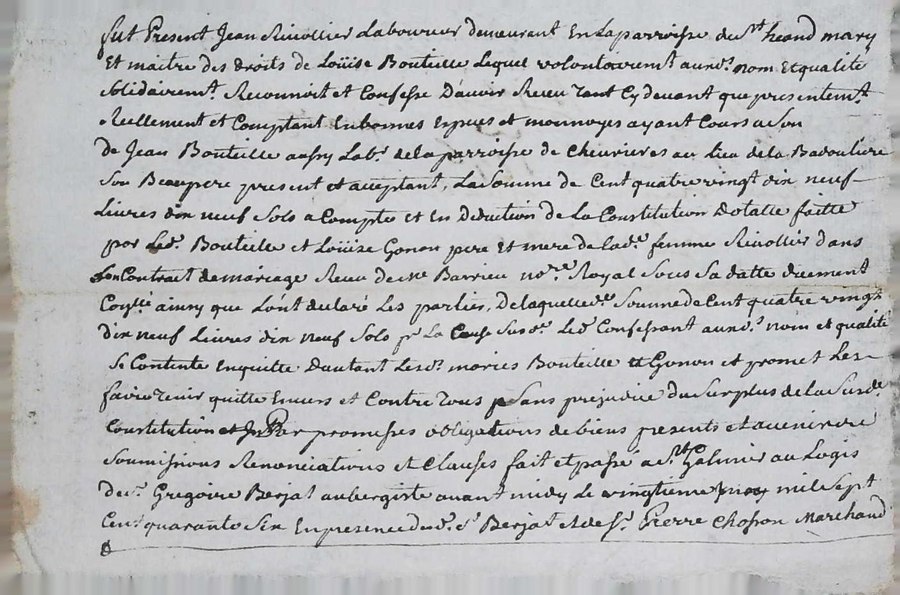 fut Present Jean Rivollier Laboureur demeurant En La parroisse de St heand mary
Et maitre des droits de Loüise Bouteille Lequel volontairemt. auxd. nom Et qualité
Solidairemt. Reconnoit et Confesse D'avoir Receu tant Cy devant que presentemt.
Reellement et Comptant En bonnes Espèces et monnoyes ayant Cours a Son
de Jean Bouteille aussy Labr. de la parroisse de Chevrieres au Lieu de la Badouliere
Son Beaupere present et acceptant, La Somme de Cent quatre vingt dix neuf
Livres dix neuf Sols a Compte et En Deduction de La Constitution Dotalle faitte
par Led. Bouteille et Loüise Gonon pere Et mere de lade. femme Rivollier dans
Son Contract de mariage Receu de me Barrieu nore. Royal Sous Sa datte düement
Conllé ainsy que L'ont declaré Les parties, De laquelle de. Somme de Cent quatre vingt
dix neuf Livres dix neuf Sols pr La Cause Susde. Led. Confessant auxd. nom et qualité
Se Contente En quitte D'autant Lesd. mariés Bouteille et Gonon et promet Les
faire tenir quitte Envers et Contre tous Sans prejudice du Surplus de la Susde.
Constitution et Par promesses obligations de biens presents et avenir
Soumissions Renonciations et Clauses fait et passé a St Galmier au Logis
de Sr. Gregoire Berjat aubergiste avant midy Le vingtieme may mil Sept
Cent quarante Six En presence dud. Sr. Berjat et de Sr. Pierre Chosson Marchand